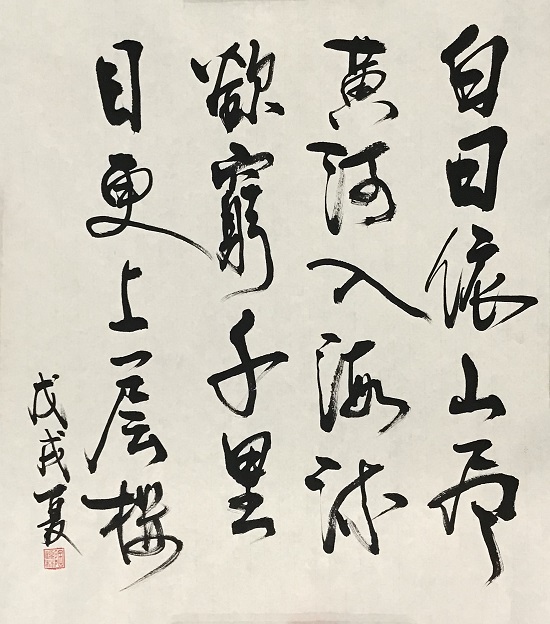 白日依山尽
黄河入海流
欲窮千里
目更上一层楼
戊戌夏